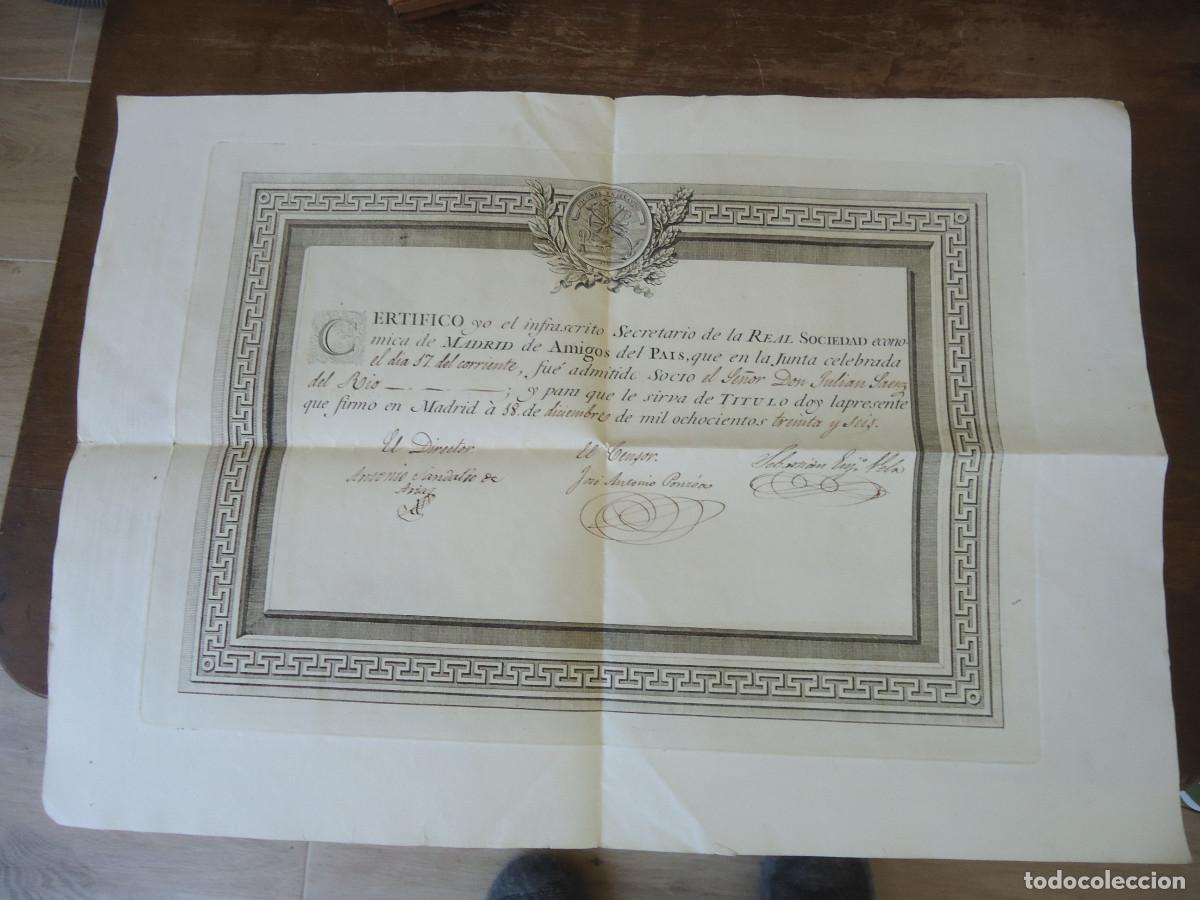 SOCORRE ENSEÑANDO
CERTIFICO yo el infrascrito Secretario de la REAL SOCIEDAD econo-
mica de MADRID de Amigos del PAIS, que en la Junta celebrada
el dia 17. del corriente, fué admitido SOCIO el Señor Don Julian Saenz
del Rio ; y para que le sirva de TITULO doy la presente
que firmo en Madrid à 18. de diciembre de mil ochocientos treinta y seis.
El Director.
El Censor.
Antonio Sandalio de
Arias
José Antonio Ponzoa
Sebastian Eug.º Vela
todocoleccion